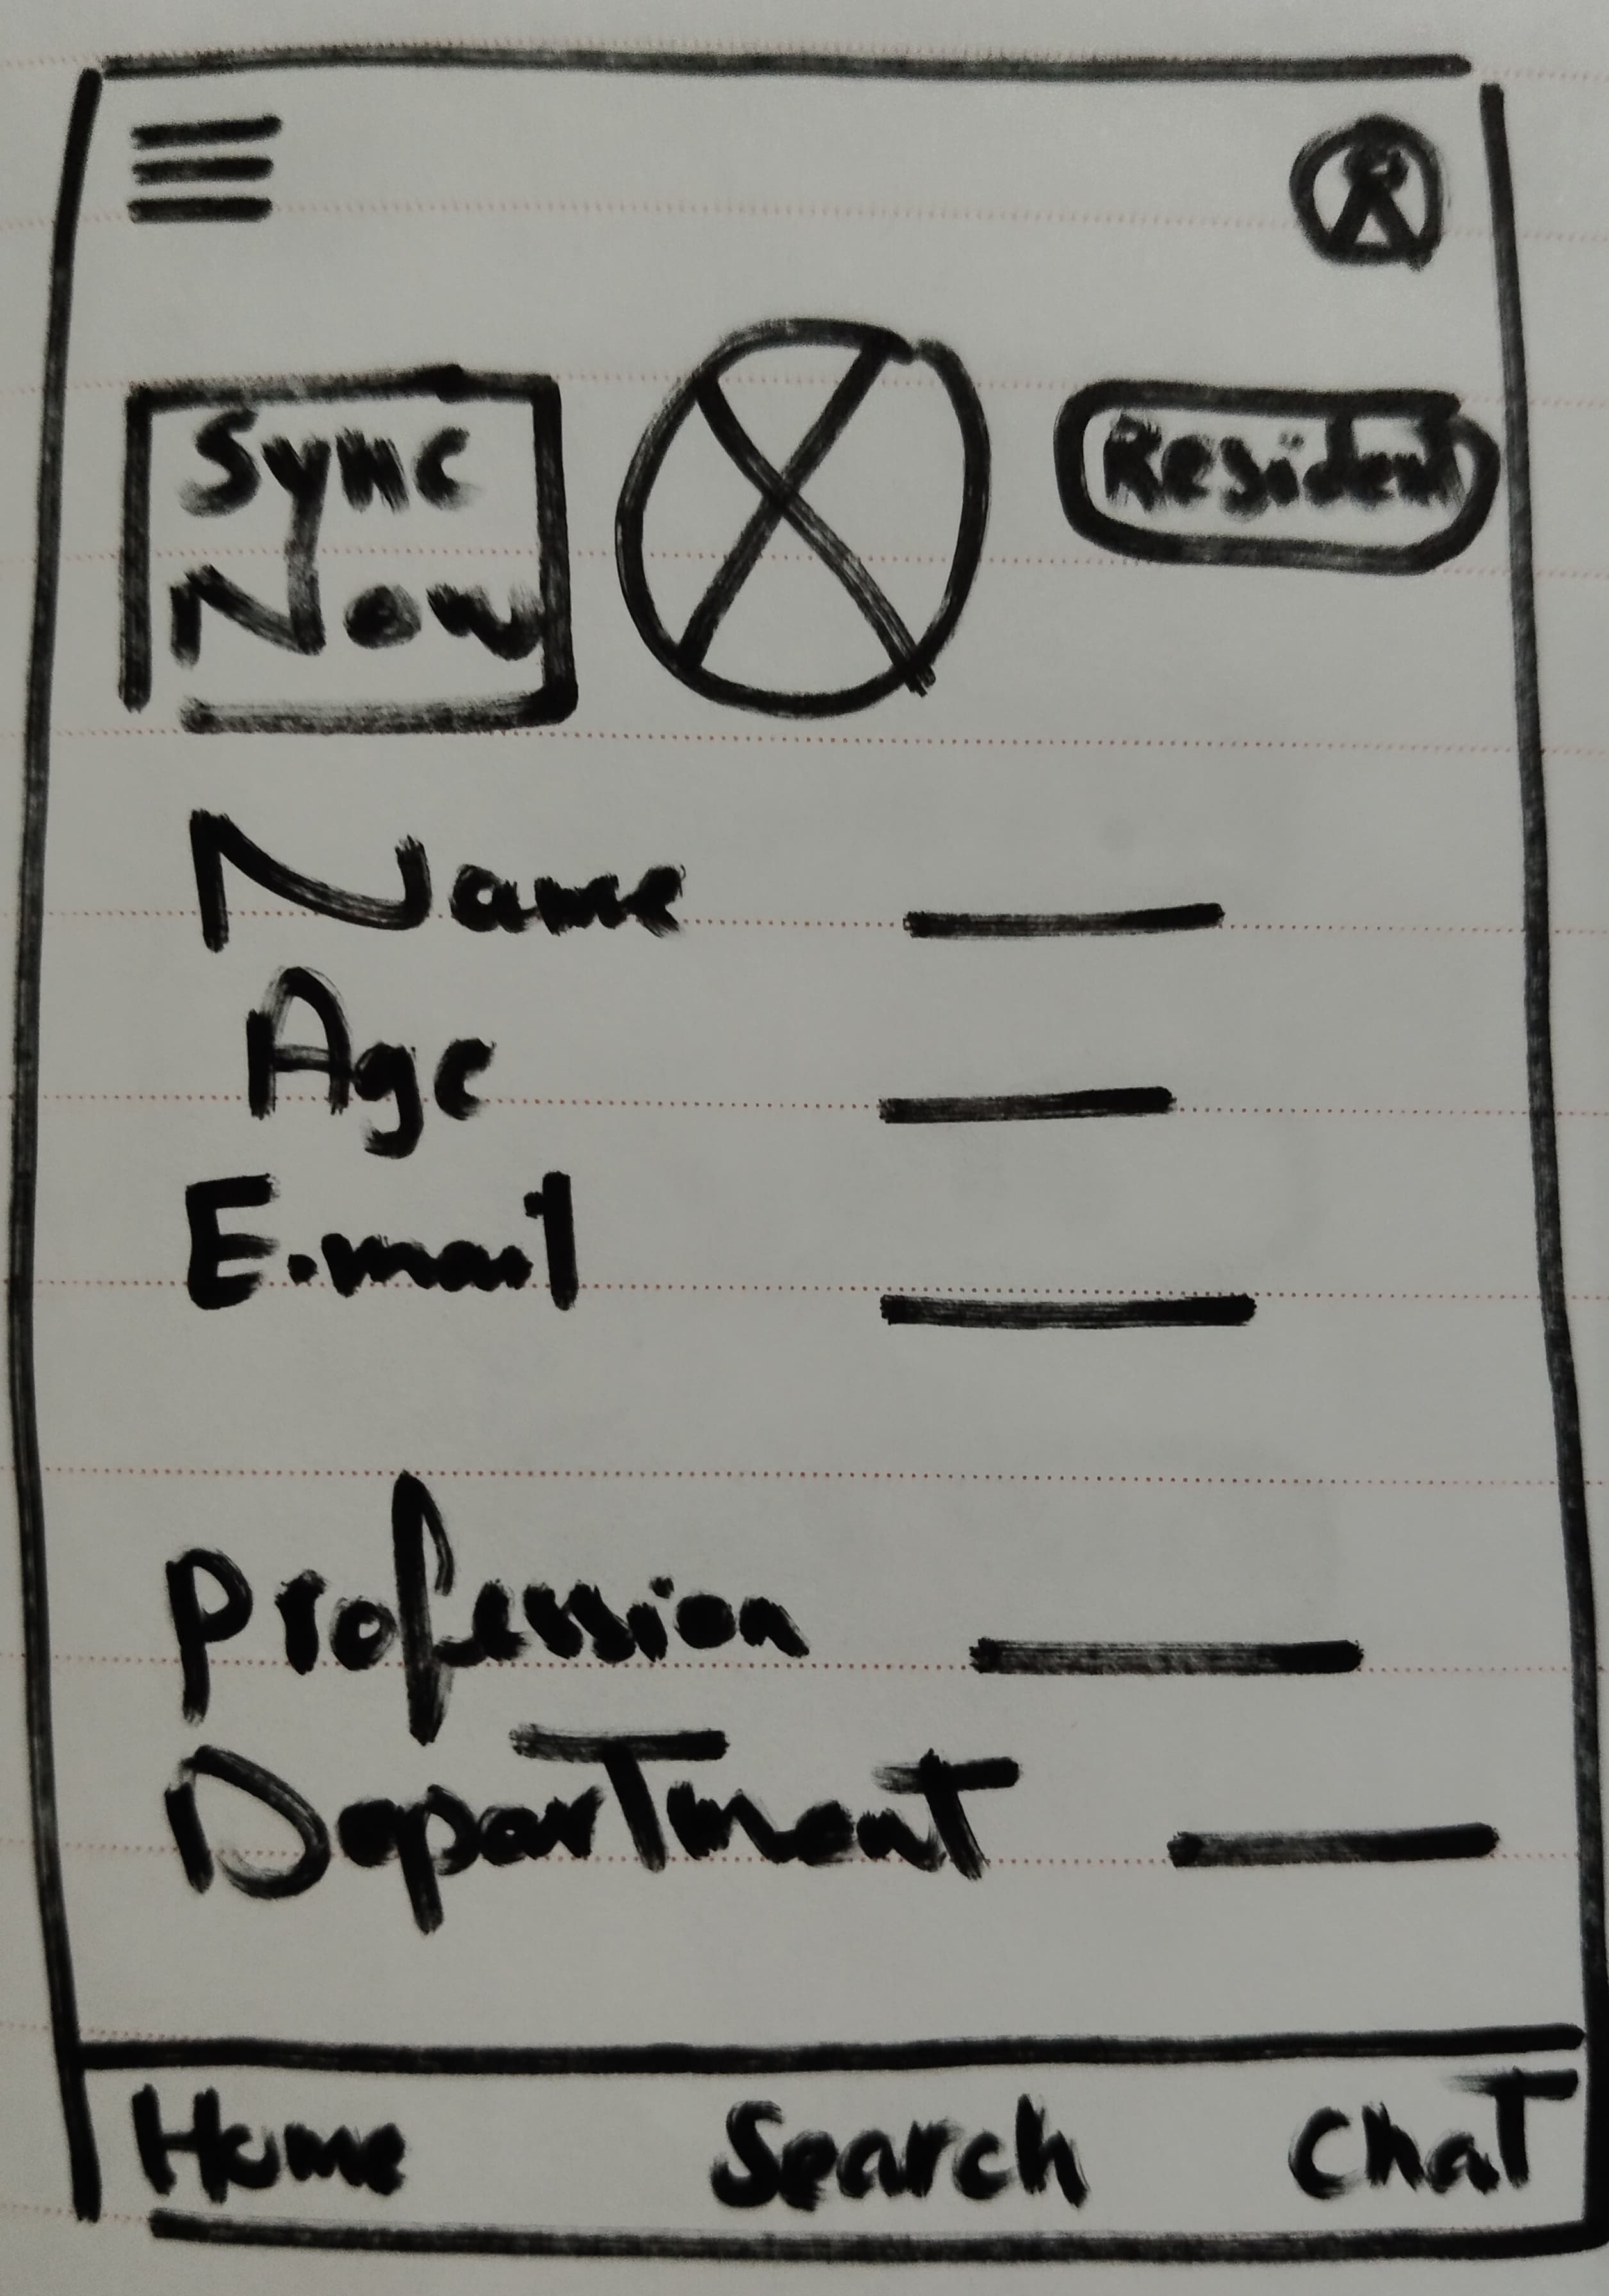 Sync
Now
Resident
Name
Age
E.mail
Profession
Department
Home Search Chat